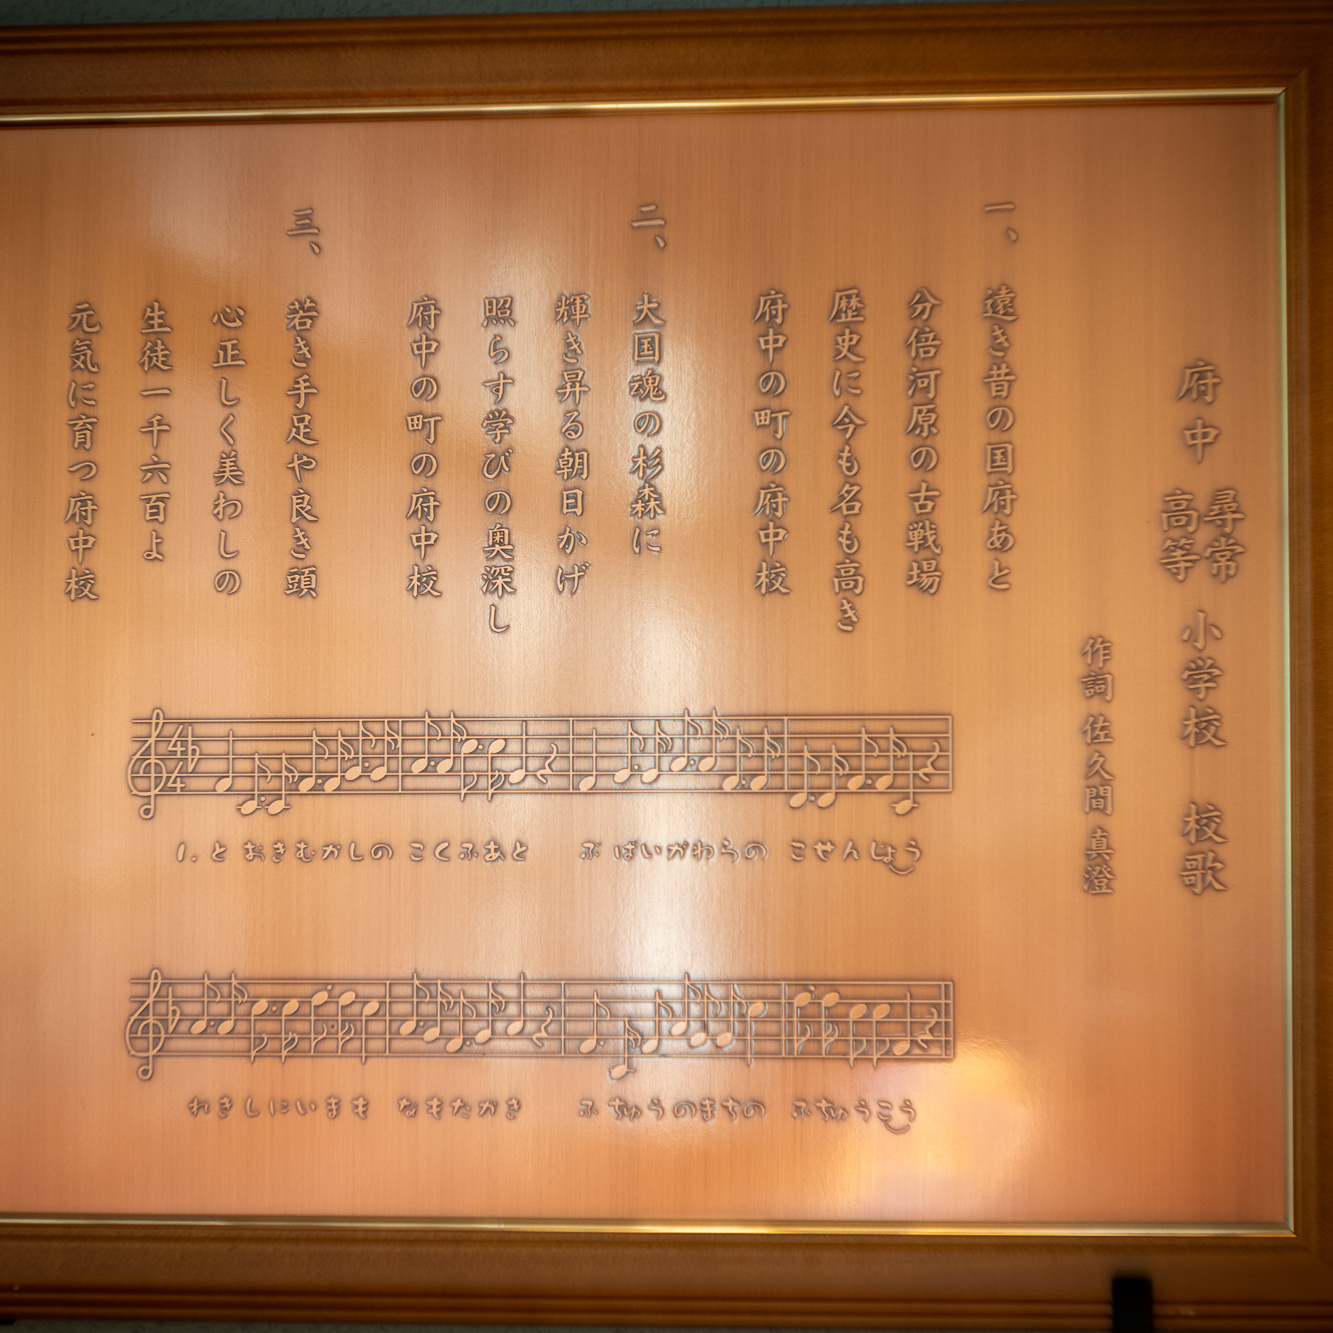 府中 尋常高等 小学校 校歌
作詞 佐久間 真澄
一、 遠き昔の国府あと
分倍河原の古戦場
歴史に今も名も高き
府中の町の府中校
二、 大国魂の杉森に
輝き昇る朝日かげ
照らす学びの奥深し
府中の町の府中校
三、 若き手足や良き頭
心正しく美わしの
生徒一千六百よ
元気に育つ府中校
4 4
1. と おきむかしの こくふあと ぶ ばいがわらの こせんじょう
れきしにいまも なもたかき ふ ちゅうのまちの ふちゅうこう